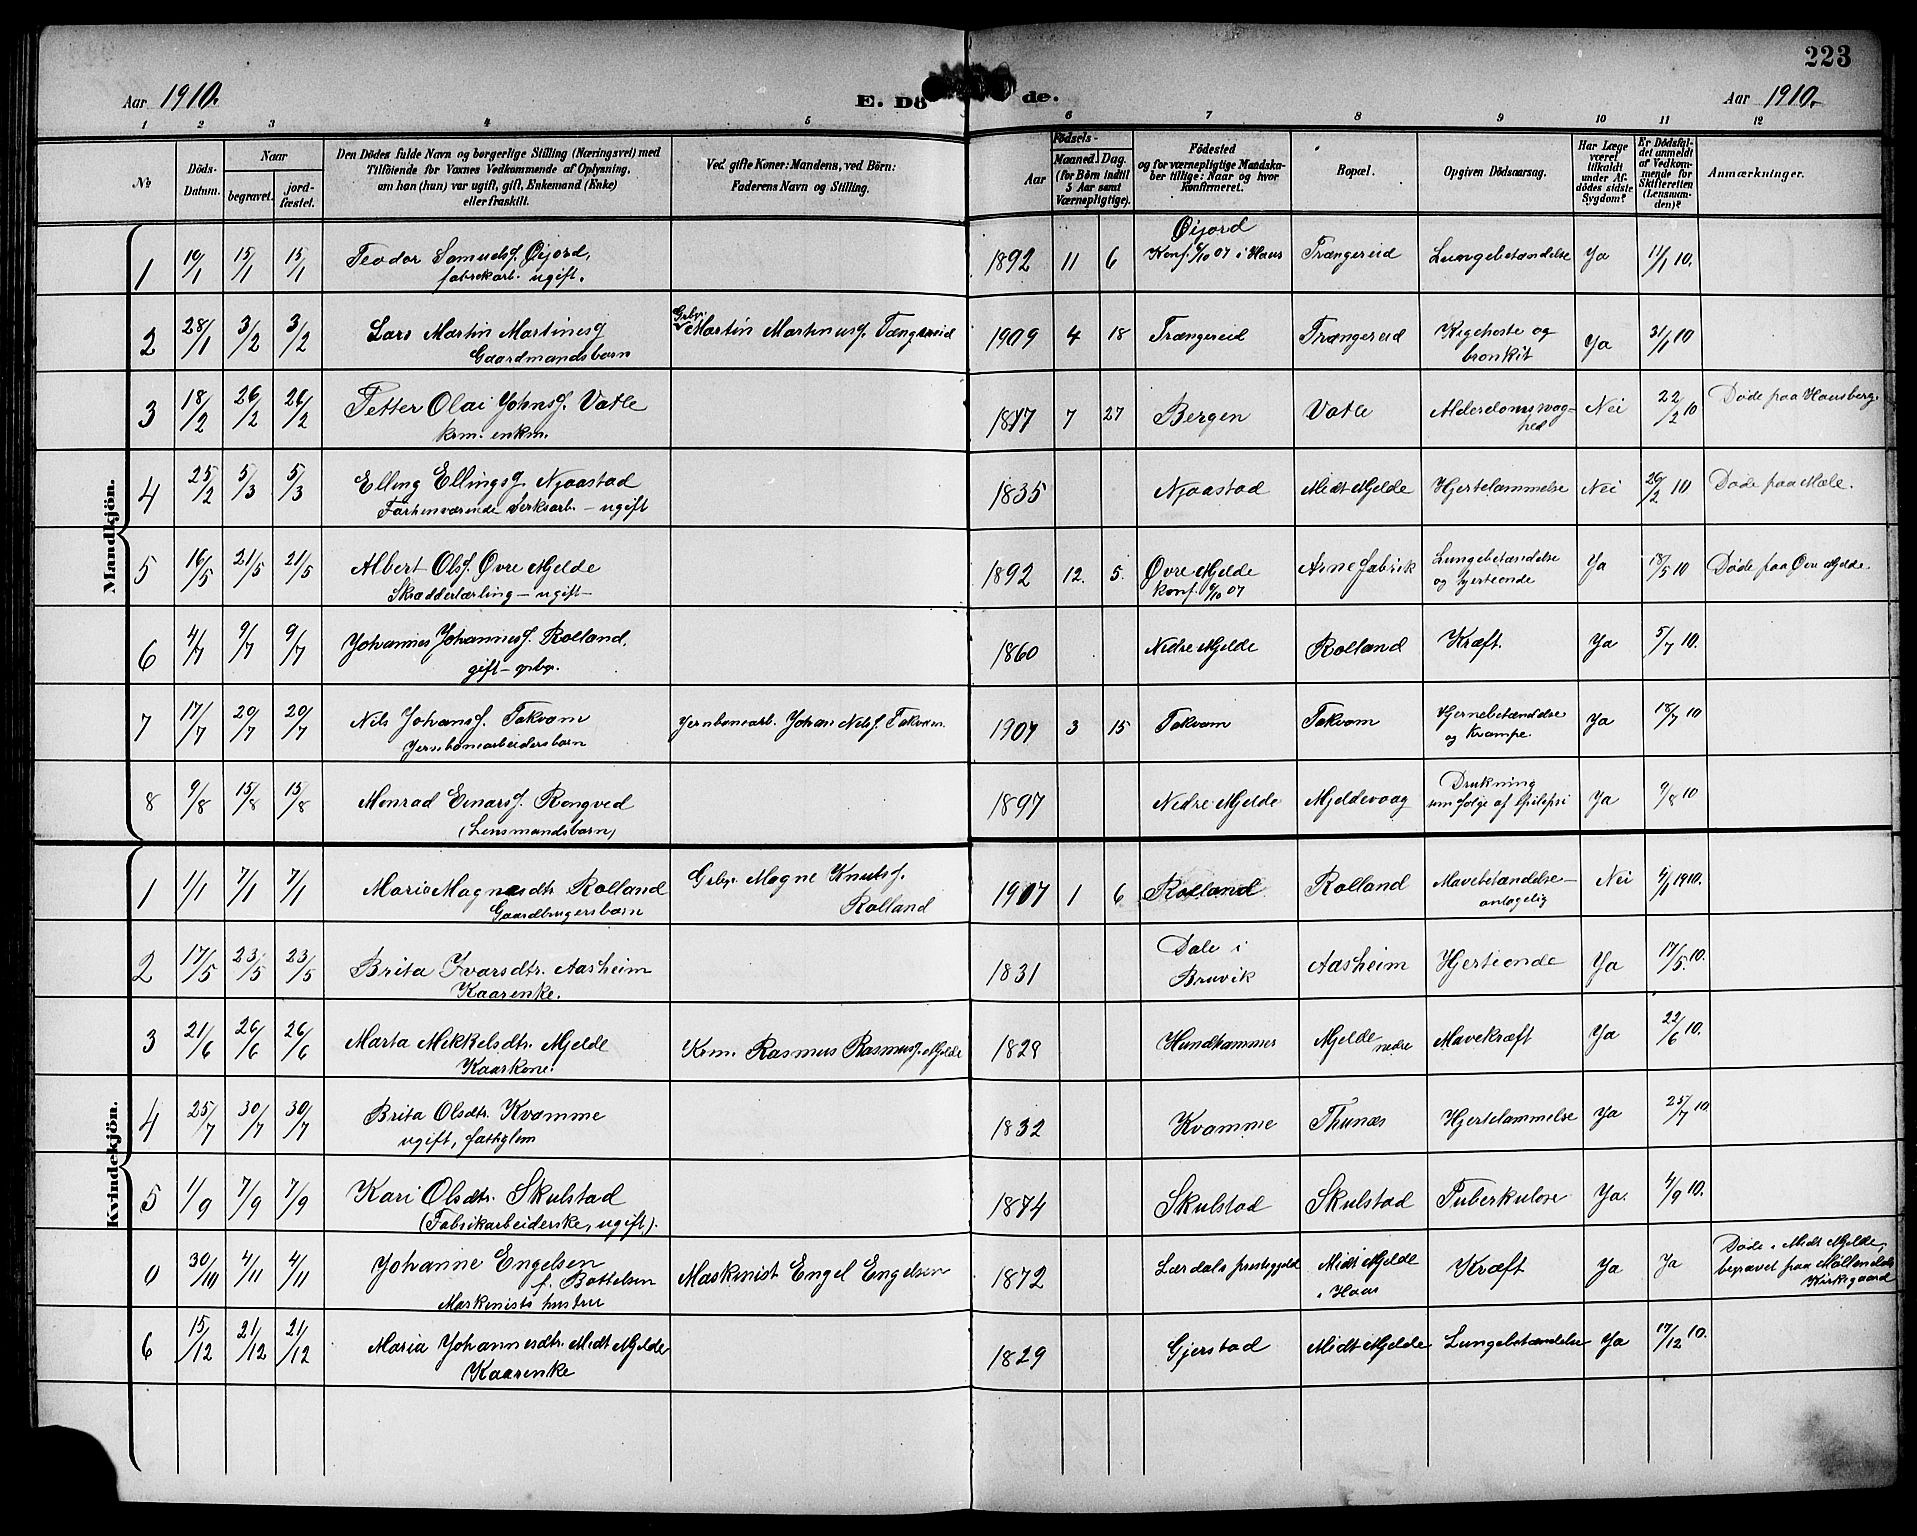 223
Aar 1910.
E. Dö de.
Aar 1910.
1 2 3 4 5 6 7 8 9 10 11 12
№
Döds-
Datum.
Naar
begravet.
jord-
fæstet.
Den Dödes fulde Navn og borgerlige Stilling (Næringsvei) med
Tilföiende for Voxnes Vedkommende af Oplysning,
om han (hun) var ugift, gift, Enkemand (Enke)
eller fraskilt.
Ved gifte Koner: Mandens, ved Börn:
Faderens Navn og Stilling.
Födsels-
Aar
Maaned.
Dag.
(for Börn indtil
5 Aar samt
Værnepligtige).
Födested
og for værnepligtige Mandska-
ber tillige: Naar og hvor
konfirmeret.
Bopæl.
Opgiven Dödsaarsag.
Har Læge
været
tilkaldt
under Af-
dödes sidste
Sygdom?
Er Dödsfal-
det anmeldt
af Vedkom-
mende for
Skifteretten
(Lensman-
den)?
Anmærkninger.
Mandkjön.
1 10/1 15/1 15/1 Teodor Samuelsf. Öijord, 1892 11 6 Öijord Trængereid Lungebetændelse Ja 11/1 10.
fabrikarb. ugift. Konf. 6/10 07 i Haus
2 28/1 3/2 3/2 Lars Martin Martinesf Grbr. Martin Martinusf. Tængereid 1909 4 18 Trængereid Trængereid Kighoste og Ja 31/1 10
Gaardmandsbarn bronkit
3 18/2 26/2 26/2 Petter Olai Johnsf. Vatle 1817 7 27 Bergen Vatle Alderdomssvag- Nei 22/2 10 Døde paa Hausberg.
krm. enkm. hed
4 25/2 5/3 5/3 Elling Ellingsf Njaastad 1835 Njaastad Midt Mjelde Hjertelammelse Nei 26/2 10 Døde paa Mæle.
Forhenværende Verksarb. - ugift
5 16/5 21/5 21/5 Albert Olsf. Øvre Mjelde 1892 12. 5. Øvre Mjelde Arne fabrik Lungebetændelse Ja 18/5 10 Døde paa Øvre Mjelde.
Skrædderlærling - ugift - konf. 6/10 07 og hjerteonde
6 4/7 9/7 9/7 Johannes Johannesf. Rolland. 1860 Nedre Mjelde Rolland Kræft. Ja 5/7 10.
gift - grbr.
7 17/7 20/7 20/7 Nils Johansf. Takvam Jernbanearb. Johan Nilsf. Takvam. 1907 3 15 Takvam Takvam Hjernebetændelse Ja 18/7 10
Jernbanearbeidersbarn og Krampe.
8 9/8 15/8 15/8 Monrad Einarsf. Rongved 1897 Nedre Mjelde Mjeldevaag Drukning Ja 9/8 10
(Lensmandsbarn) som følge af Epilepsi
Kvindekjön.
1 1/1 7/1 7/1 Maria Magnesdtr. Rolland Grbr. Magne Knutsf. 1907 1 6 Rolland Rolland Mavebetændelse - Nei 6/1 1910.
Gaardbrugersbarn Rolland antagelig
2 17/5 23/5 23/5 Brita Ivarsdtr. Aasheim 1831 Dale i Aasheim Hjerteonde Ja 17/5. 10.
Kaarenke. Bruvik
3 21/6 26/6 26/6 Marta Mikkelsdtr. Mjelde Krm. Rasmus Rasmusf. Mjelde 1829 Hundhammer Mjelde nedre Mavekræft Ja 22/6 10.
Kaarkone.
4 25/7 30/7 30/7 Brita Olsdtr. Kvamme 1832 Kvamme Thunæs Hjertelammelse Ja 25/7 10
ugift, fathglem
5 1/9 7/9 7/9 Kari Olsdtr. Skulstad 1874 Skulstad Skulstad Tuberkulose Ja. 4/9 10.
(Fabrikarbeiderske, ugift).
0 30/10 4/11 4/11 Johanne Engelsen Maskinist Engel Engelsen 1872 Lærdals prestegjeld Midt Mjelde Kræft Ja Ja Døde i Midt Mjelde,
f. Bottelsen i Haus begravet paa Møllendals
Maskinists hustru Kirkegaard
6 15/12 21/12 21/12 Maria Johannesdtr. Midt Mjelde 1829 Gjerstad Midt Mjelde Lungebetændelse Ja 17/12 10.
Kaarenke